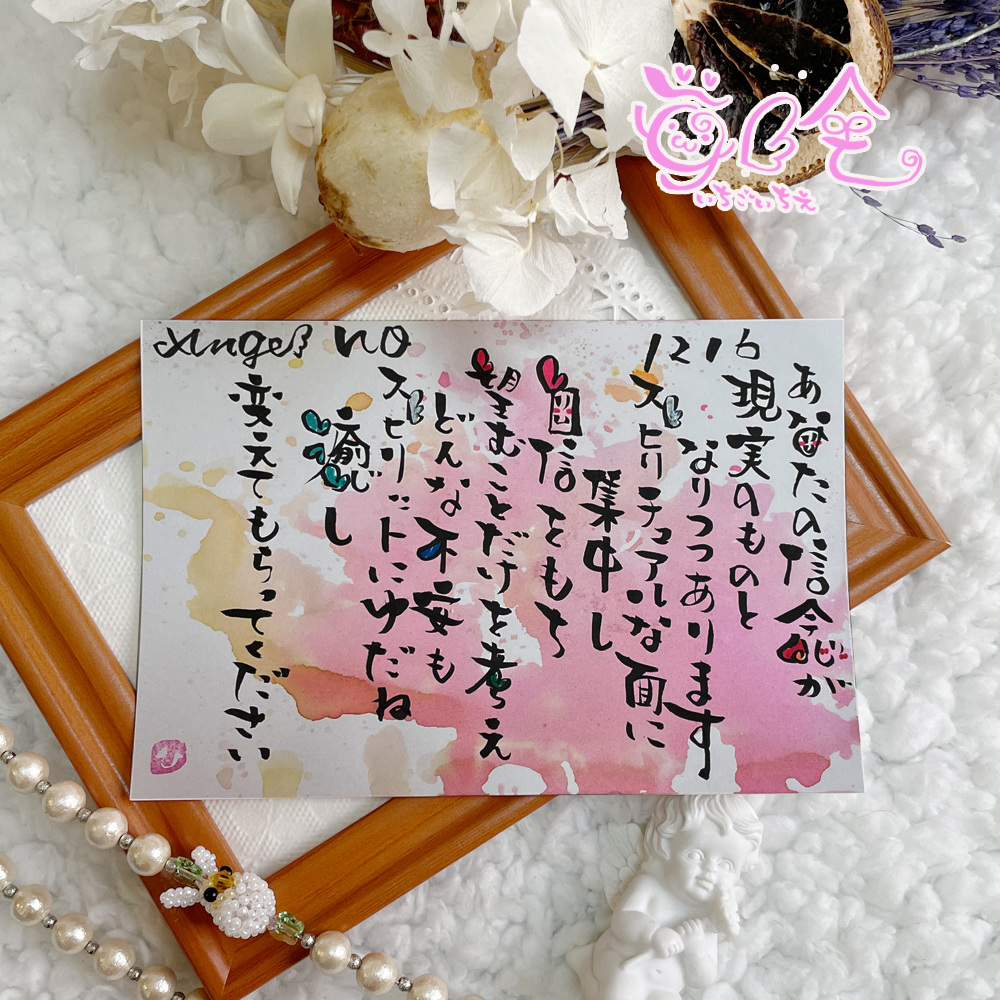 Angel NO
1216
あなたの信念が
現実のものと
なりつつあります
スピリチュアルな面に
集中し
自信をもち
望むことだけを考え
どんな不安も
スピリットにゆだね
癒し
変えてもらってください
いちごいちえ